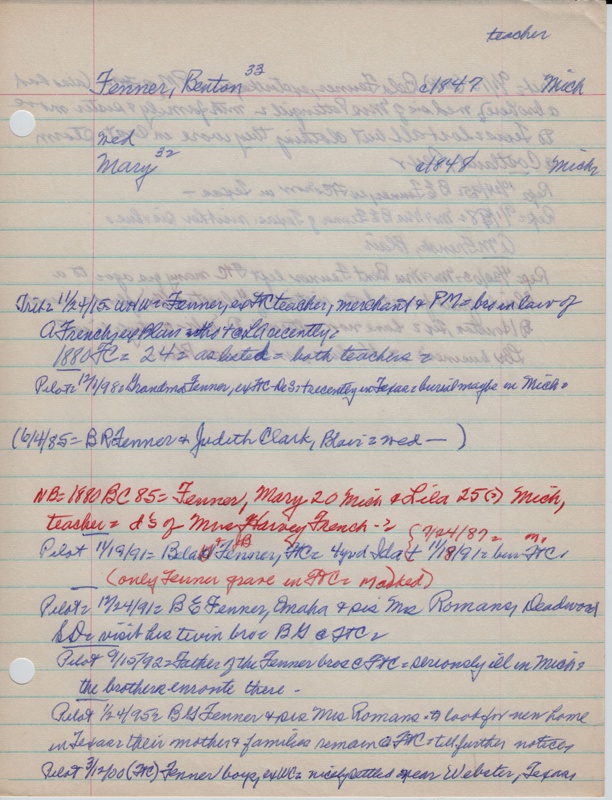 teacher
Fenner, Benton 33 c1847 Mich
wed
Mary 32 c1848 Mich
Trib= 11/24/15= WHW= Fenner, ex FtC teacher, merchant & PM= bro in law of
A French, ex Blair = + recently=
1880 FC= 24= as listed= both teachers=
Pilot= 12/1/98= Grandma Fenner, ex FtC = + recently in Texas= burial maybe in Mich=
(6/4/85= B R Fenner & Judith Clark, Blair= wed — )
NB= 1880 BC 85= Fenner, Mary 20 Mich & Lila 25(?) Mich,
teacher= d's of Mrs Harvey French -?
Pilot 11/19/91= Fenner, FtC= 4 yr d Ida + 11/18/91= bur FtC.
{ 9/24/87=
(only Fenner grave in FtC= marked)
Pilot= 12/24/91= B E Fenner, Omaha & sis Mrs Romans, Deadwood
SD= visit his twin bro= B G @ FtC=
Pilot 9/15/92= Father of the Fenner bros @ FtC= seriously ill in Mich=
the brothers enroute there -
Pilot 1/24/95= B G Fenner & sis Mrs Romans= to look for new home
in Texas= their mother & families remain @ FtC till further notice=
Pilot 3/12/00 (FtC) Fenner boys, ex WC= nicely settled near Webster, Texas